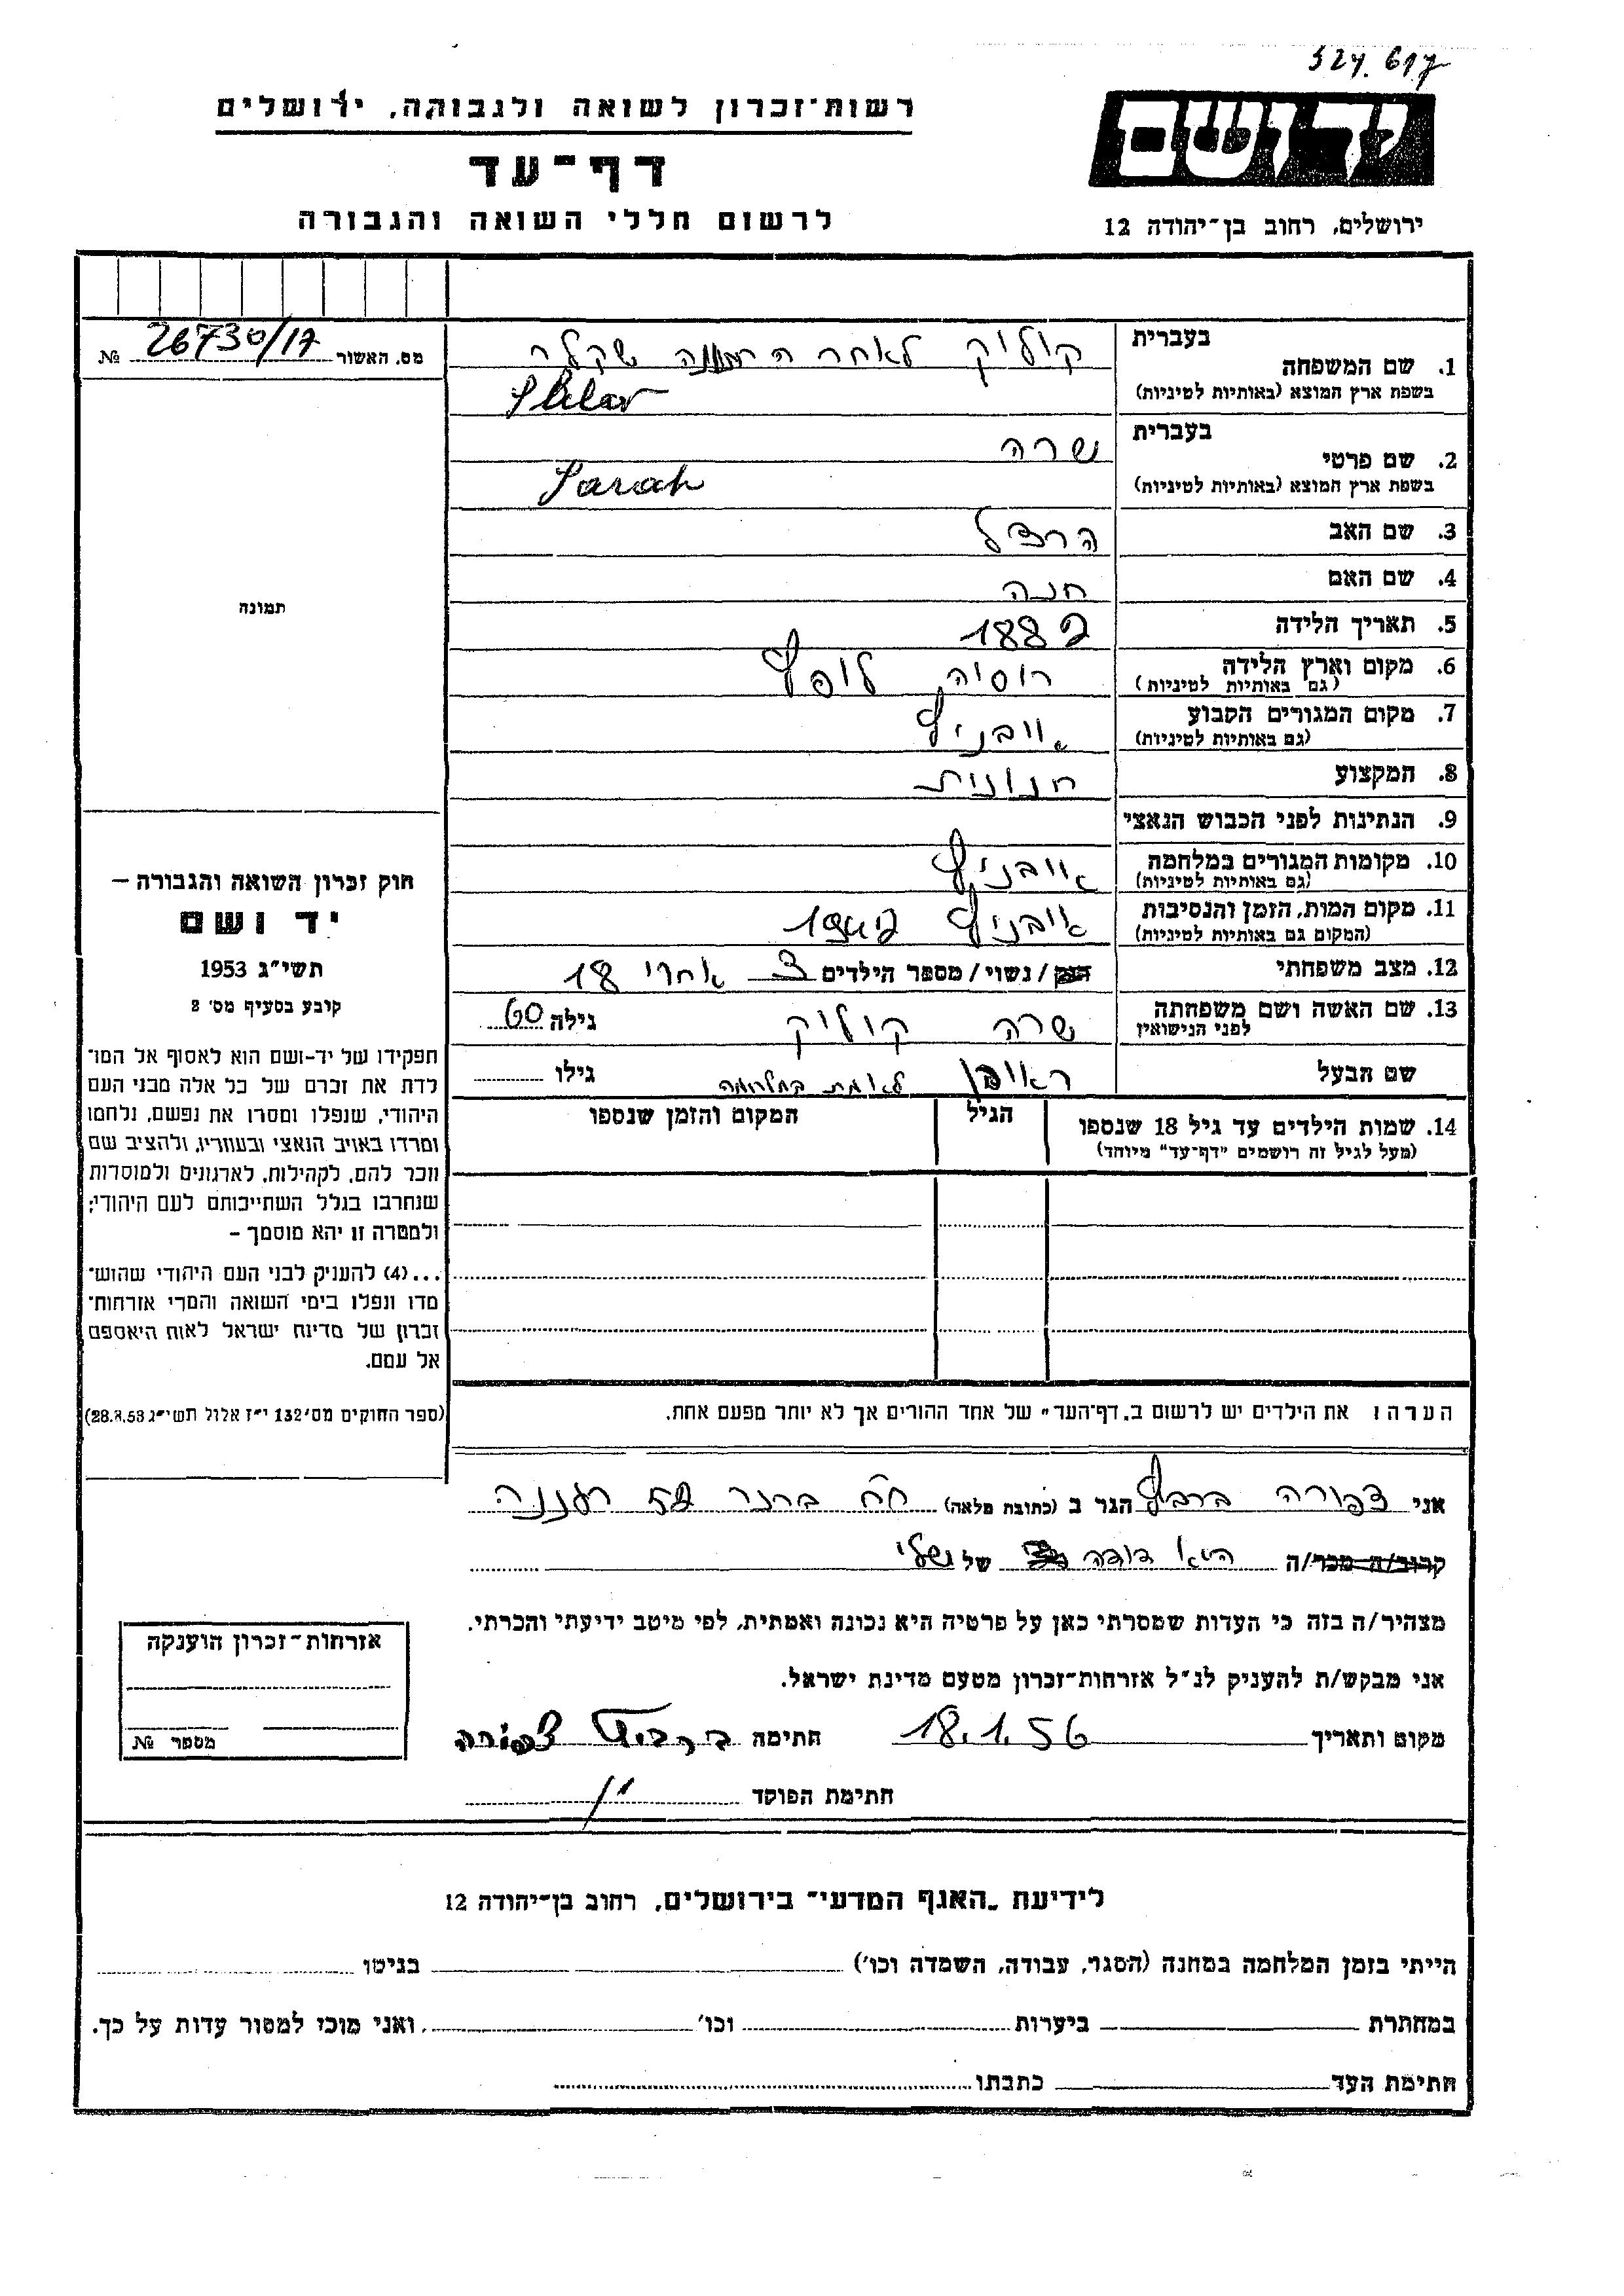 524.617
רשות־זכרון לשואה ולגבורה, ירושלים
יד ושם
דף־עד
לרשום חללי השואה והגבורה
ירושלים, רחוב בן־יהודה 12
מס. האשור 26730/17 №
בעברית קוליק לאחר ה שקלר
1. שם המשפחה
בשפת ארץ המוצא (באותיות לטיניות) Sklar
בעברית שרה
2. שם פרטי
בשפת ארץ המוצא (באותיות לטיניות) Sarah
3. שם האב הרצל
4. שם האם חנה
5. תאריך הלידה ב 188
6. מקום וארץ הלידה רוסיה,
(גם באותיות לטיניות)
7. מקום המגורים הקבוע
(גם באותיות לטיניות)
8. המקצוע חנונית
9. הנתינות לפני הכבוש הנאצי
10. מקומות המגורים במלחמה
(גם באותיות לטיניות)
11. מקום המות, הזמן והנסיבות
(המקום גם באותיות לטיניות)
12. מצב משפחתי רוק/נשוי/מספר הילדים 3 אחרי 18
13. שם האשה ושם משפחתה שרה קוליק גילה 60
לפני הנישואין
שם הבעל ראובן במלחמה גילו
14. שמות הילדים עד גיל 18 שנספו הגיל המקום והזמן שנספו
(מעל לגיל זה רושמים "דף־עד" מיוחד)
הערה: את הילדים יש לרשום ב„דף־העד" של אחד ההורים אך לא יותר מפעם אחת.
תמונה
חוק זכרון השואה והגבורה –
יד ושם
תשי"ג 1953
קובע בסעיף מס׳ 2
תפקידו של יד-ושם הוא לאסוף אל המו־
לדת את זכרם של כל אלה מבני העם
היהודי, שנפלו ומסרו את נפשם, נלחמו
ומרדו באויב הנאצי ובעוזריו, ולהציב שם
וזכר להם, לקהילות, לארגונים ולמוסדות
שנחרבו בגלל השתייכותם לעם היהודי;
ולמטרה זו יהא מוסמך –
...(4) להעניק לבני העם היהודי שהוש־
מדו ונפלו בימי השואה והמרי אזרחות־
זכרון של מדינת ישראל לאות היאספם
אל עמם.
(ספר החוקים מס׳ 132 י"ז אלול תשי"ג 28.8.53)
אני צפורה הגר ב (כתובת מלאה) רעננה
קרוב/ה מכר/ה היא דודה של בעלי
מצהיר/ה בזה כי העדות שמסרתי כאן על פרטיה היא נכונה ואמתית, לפי מיטב ידיעתי והכרתי.
אני מבקש/ת להעניק לנ"ל אזרחות־זכרון מטעם מדינת ישראל.
מקום ותאריך 18.1.56 חתימה צפורה
חתימת הפוקד
אזרחות־זכרון הוענקה
מספר №
לידיעת „האגף המדעי" בירושלים, רחוב בן־יהודה 12
הייתי בזמן המלחמה במחנה (הסגר, עבודה, השמדה וכו׳) בגיטו
במחתרת ביערות וכו׳ ואני מוכן למסור עדות על כך.
חתימת העד כתבתו